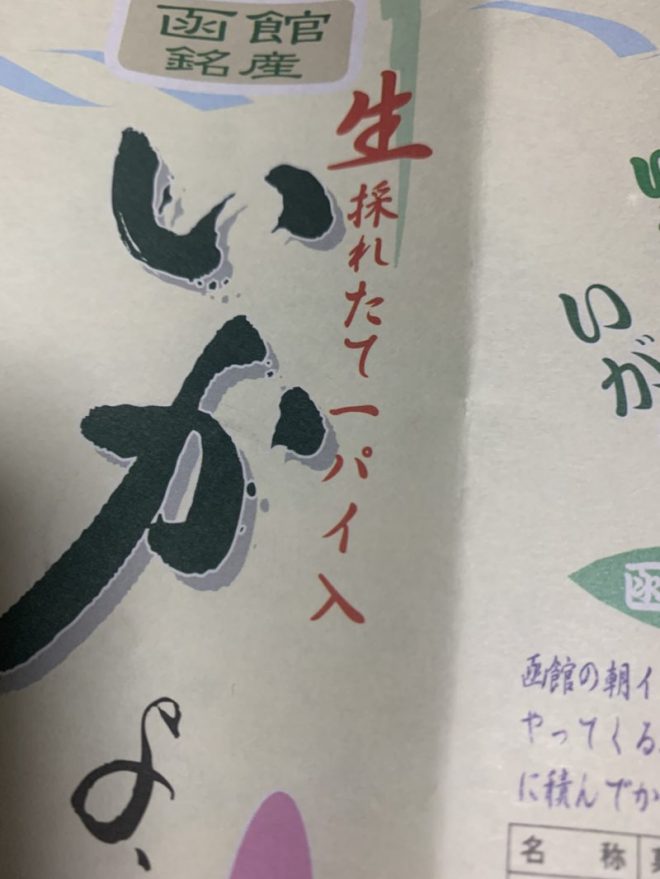 函館
銘産
生採れたて一パイ入
いか
いが
函
函館の朝イ
やってくる
に積んでか
名称